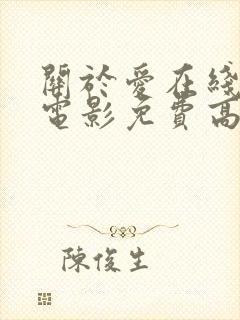 關於愛在綫
電影免費高
陳俊生